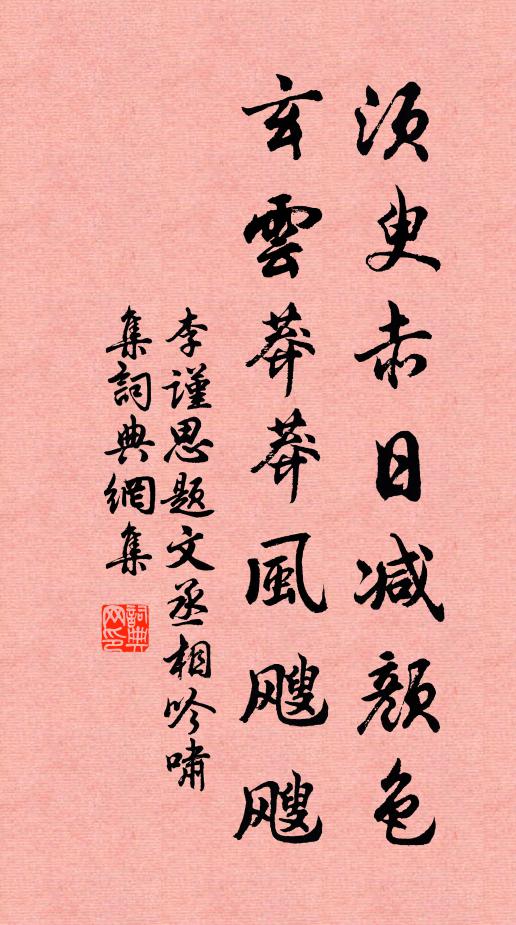 須臾赤日減顏色
玄雲莽莽風颼颼
李謹思題文丞相吟嘯
集詞典網集
詞典網印